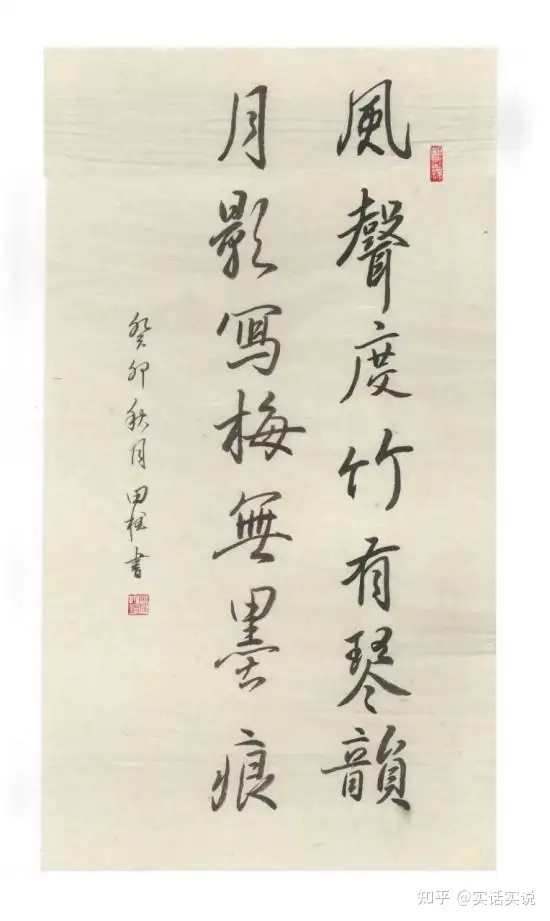 風聲度竹有琴韻
月影寫梅無墨痕
癸卯秋月田桂書
知乎 @实话实说